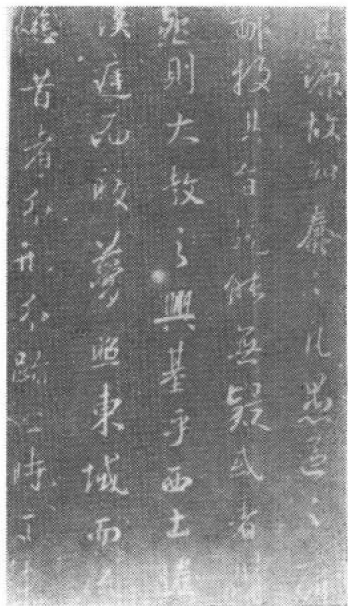 其源故知蠢〻凡愚區〻庸
鄙投其旨趣能無疑或者哉
然則大教之興基乎西土騰
漢庭而皎夢照東域而流
慈昔者分形分跡之時言未